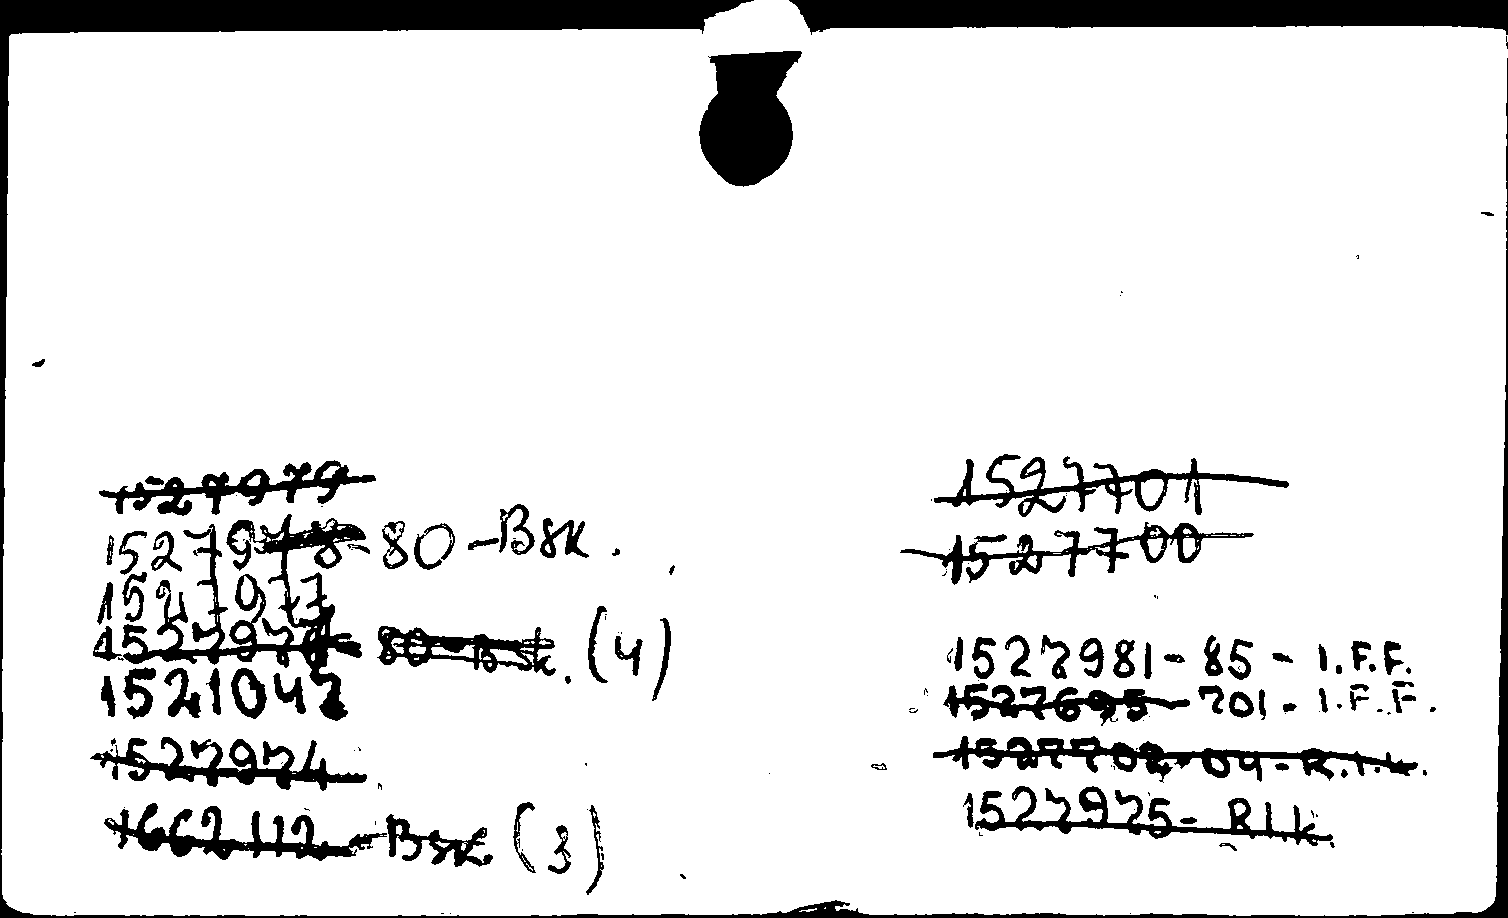 1527979
1527978 80 - Bsk.
1527977
1527976 80 - Bsk. (4)
1521042
1527974
1662112 - Bsk. (3)
1527701
1527700
1527981 - 85 - I.F.F.
1527695 - 701 - I.F.F.
1527702 - 04 - R.I.K.
1527975 - RIk